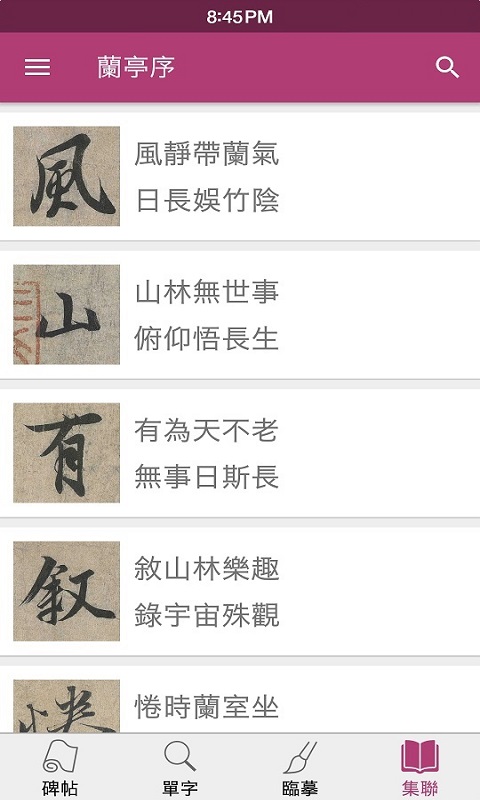 8:45PM
蘭亭序
風
風靜帶蘭氣
日長娛竹陰
山
山林無世事
俯仰悟長生
有
有為天不老
無事日斯長
叙
敘山林樂趣
錄宇宙殊觀
惓時蘭室坐
碑帖
單字
臨摹
集聯